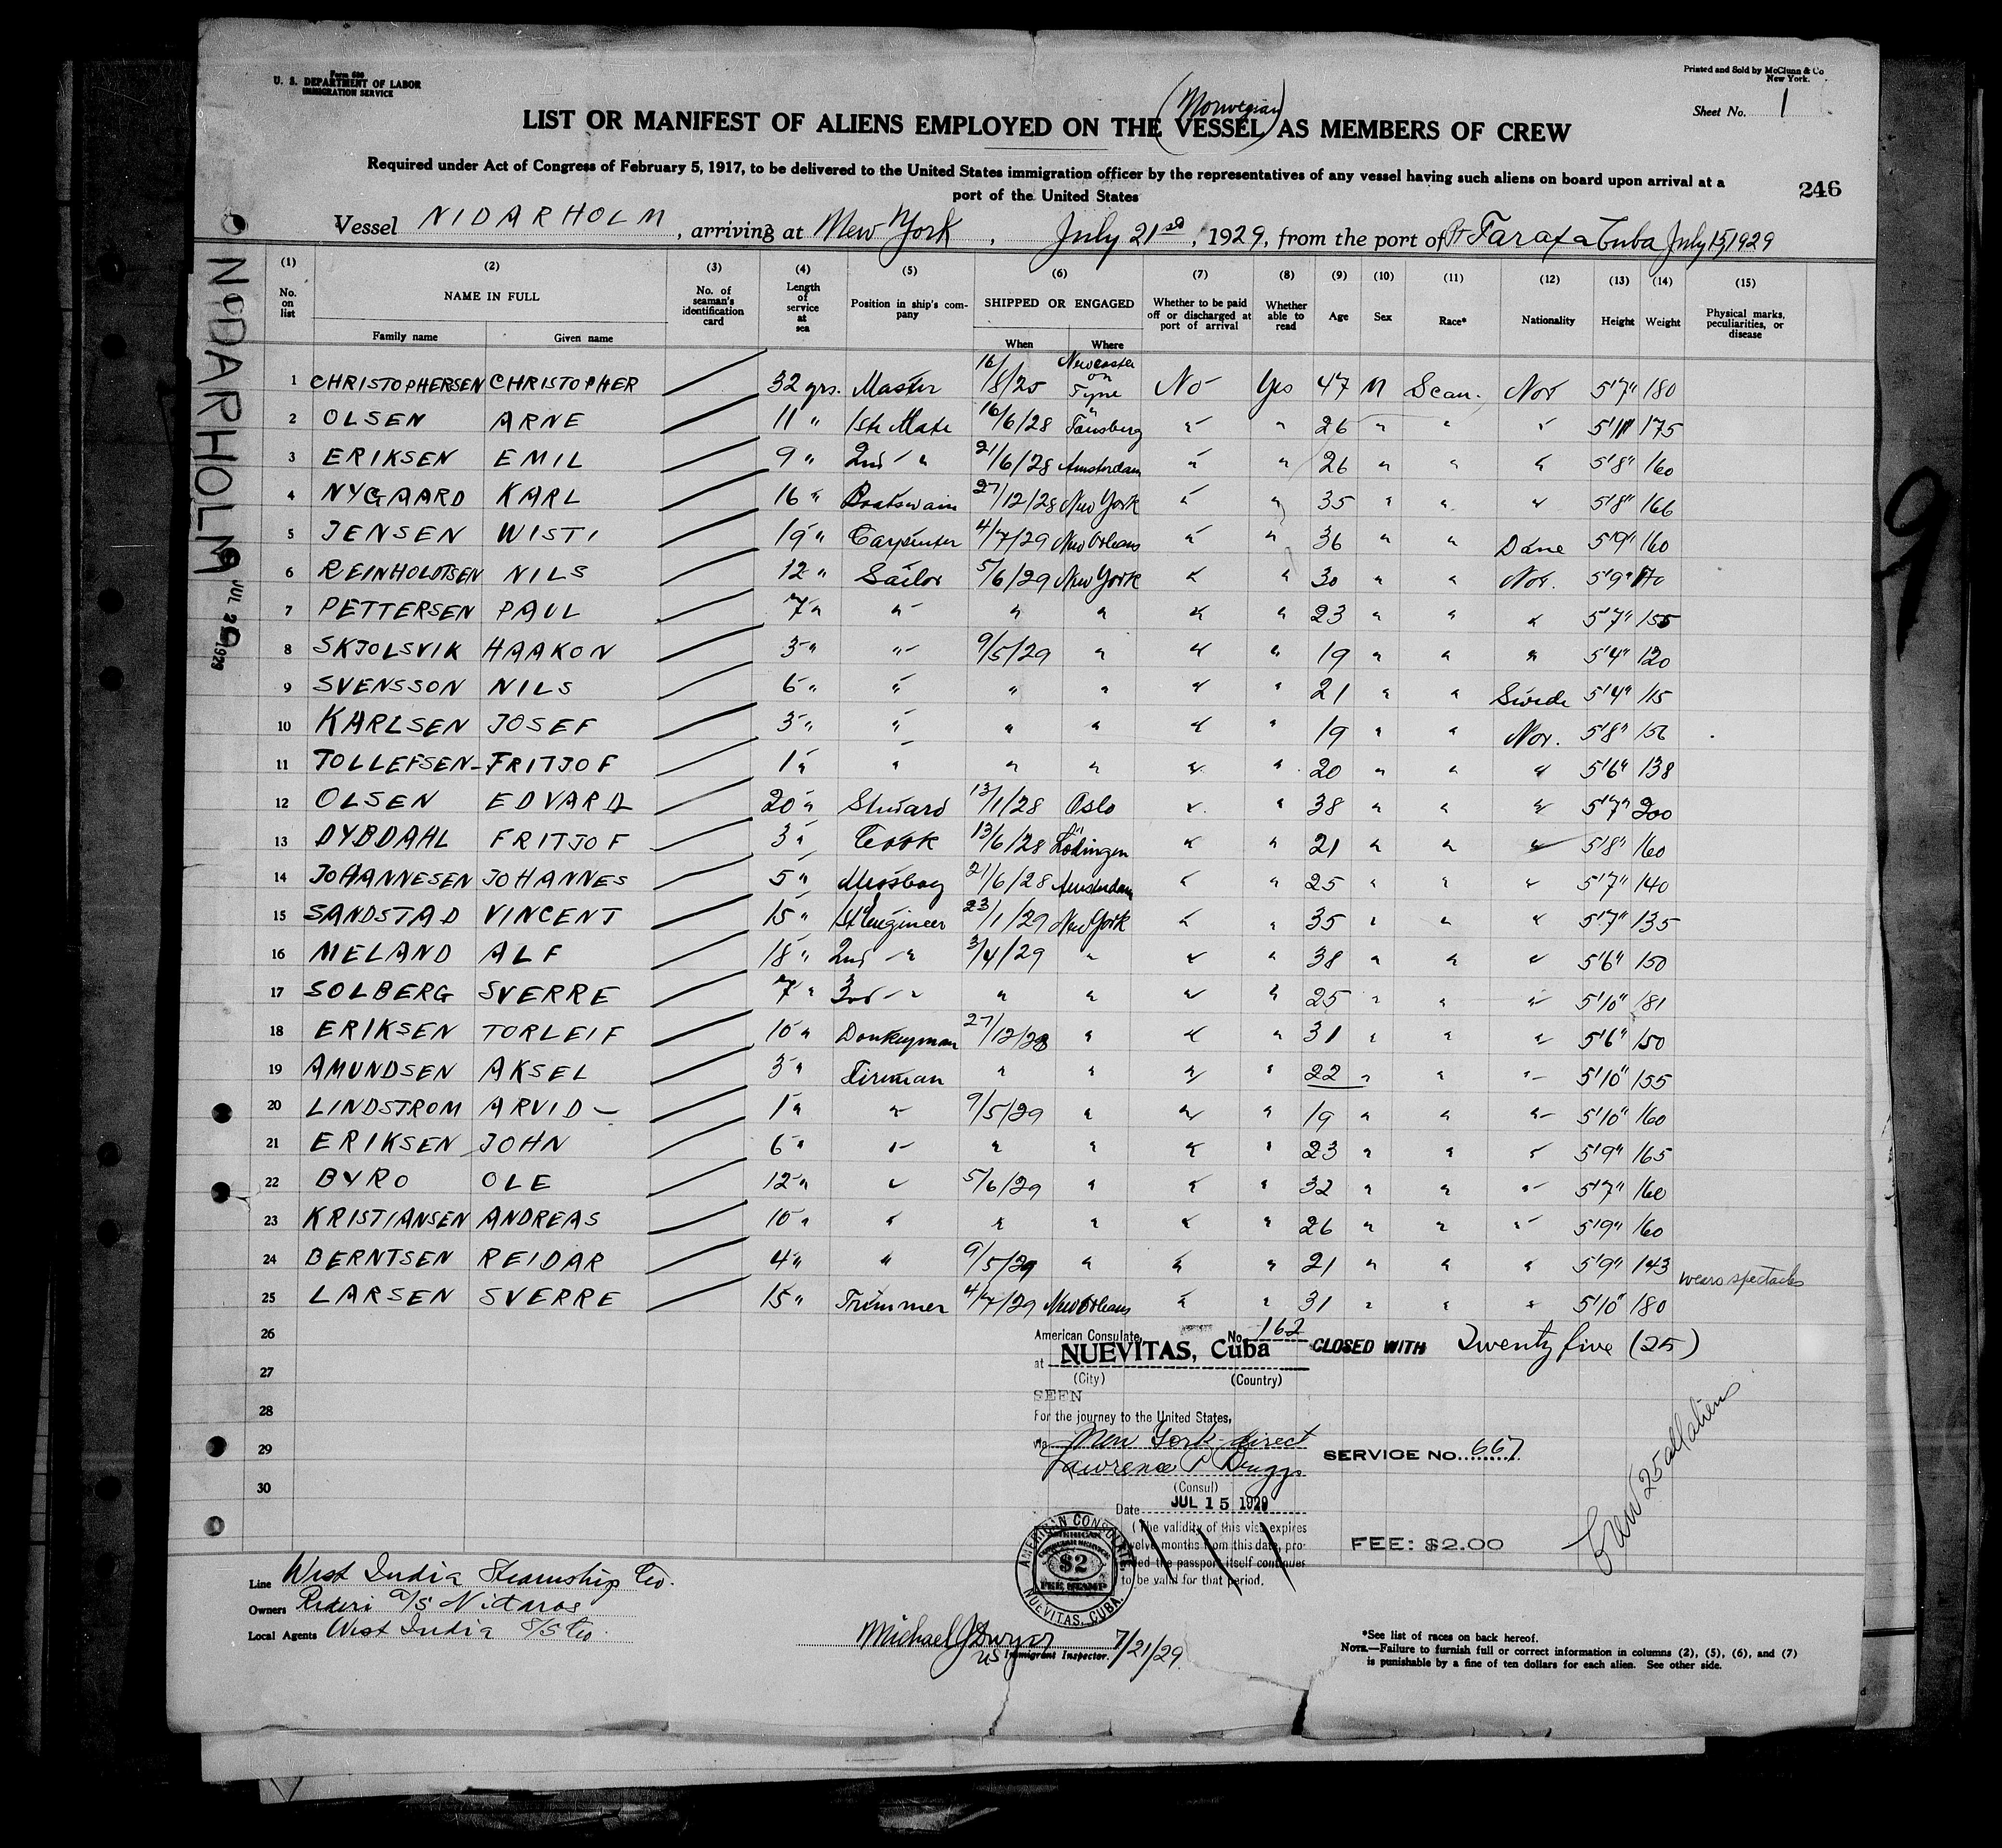 Form 680
U. S. DEPARTMENT OF LABOR
IMMIGRATION SERVICE
Printed and Sold by McClunn & Co
New York.
Sheet No. 1
(Norwegian)
LIST OR MANIFEST OF ALIENS EMPLOYED ON THE VESSEL AS MEMBERS OF CREW
Required under Act of Congress of February 5, 1917, to be delivered to the United States immigration officer by the representatives of any vessel having such aliens on board upon arrival at a
port of the United States
246
Vessel NIDARHOLM, arriving at New York, July 21st, 1929, from the port of Pt Tarafa Cuba July 15, 1929
(1) (2) (3) (4) (5) (6) (7) (8) (9) (10) (11) (12) (13) (14) (15)
No. on list NAME IN FULL No. of seaman's identification card Length of service at sea Position in ship's company SHIPPED OR ENGAGED Whether to be paid off or discharged at port of arrival Whether able to read Age Sex Race* Nationality Height Weight Physical marks, peculiarities, or disease
Family name Given name When Where
1 CHRISTOPHERSEN CHRISTOPHER 32 yrs. Master 16/8/25 Newcastle on Tyne No Yes 47 M Scan. Nor 5'7" 180
2 OLSEN ARNE 11 " 1st Mate 16/6/28 Tönsberg " " 26 " " " 5'11" 175
3 ERIKSEN EMIL 9 " 2nd " 21/6/28 Amsterdam " " 26 " " " 5'8" 160
4 NYGAARD KARL 16 " Boatswain 27/12/28 New York " " 35 " " " 5'8" 166
5 JENSEN WISTI 19 " Carpenter 4/7/29 New Orleans " " 36 " " Dane 5'9" 160
6 REINHOLDTSEN NILS 12 " Sailor 5/6/29 New York " " 30 " " Nor. 5'9" 170
7 PETTERSEN PAUL 7 " " " " " " 23 " " " 5'7" 155
8 SKJOLSVIK HAAKON 3 " " 9/5/29 " " " 19 " " " 5'4" 120
9 SVENSSON NILS 6 " " " " " " 21 " " Swede 5'4" 115
10 KARLSEN JOSEF 3 " " " " " " 19 " " Nor. 5'8" 156
11 TOLLEFSEN FRITJOF 1 " " " " " " 20 " " " 5'6" 138
12 OLSEN EDVARD 20 " Steward 13/1/28 Oslo " " 38 " " " 5'7" 200
13 DYBDAHL FRITJOF 3 " Cook 13/6/28 Lödingen " " 21 " " " 5'8" 160
14 JOHANNESEN JOHANNES 5 " Messboy 21/6/28 Amsterdam " " 25 " " " 5'7" 140
15 SANDSTAD VINCENT 15 " 1st Engineer 23/1/29 New York " " 35 " " " 5'7" 135
16 MELAND ALF 18 " 2nd " 3/4/29 " " " 38 " " " 5'6" 150
17 SOLBERG SVERRE 7 " 3rd " " " " " 25 " " " 5'10" 181
18 ERIKSEN TORLEIF 10 " Donkeyman 27/12/28 " " " 31 " " " 5'6" 150
19 AMUNDSEN AKSEL 3 " Fireman " " " " 22 " " " 5'10" 155
20 LINDSTROM ARVID 1 " " 9/5/29 " " " 19 " " " 5'10" 160
21 ERIKSEN JOHN 6 " " " " " " 23 " " " 5'9" 165
22 BYRO OLE 12 " " 5/6/29 " " " 32 " " " 5'7" 160
23 KRISTIANSEN ANDREAS 10 " " " " " " 26 " " " 5'9" 160
24 BERNTSEN REIDAR 4 " " 9/5/29 " " " 21 " " " 5'9" 143
25 LARSEN SVERRE 15 " Trimmer 4/7/29 New Orleans " " 31 " " " 5'10" 180 wears spectacles
26
27
28
29
30
American Consulate, No. 162
at NUEVITAS, Cuba
(City) (Country)
CLOSED WITH Twenty five (25)
SEEN
For the journey to the United States,
via New York direct
Lawrence P Briggs
(Consul)
SERVICE NO. 667
Date JUL 15 1929
(The validity of this visa expires
twelve months from this date, pro-
vided the passport itself continues
to be valid for that period.
FEE: $2.00
Crew 25 all aliens
AMERICAN CONSULATE
NUEVITAS, CUBA.
AMERICAN
CONSULAR SERVICE
$2
FEE STAMP
Line West India Steamship Co.
Owners Rederi A/S Nidaros
Local Agents West India S/S Co.
Michael J Dwyer 7/21/29
US Immigrant Inspector.
*See list of races on back hereof.
NOTE.—Failure to furnish full or correct information in columns (2), (5), (6), and (7)
is punishable by a fine of ten dollars for each alien. See other side.
NIDARHOLM
JUL 2 1929
9